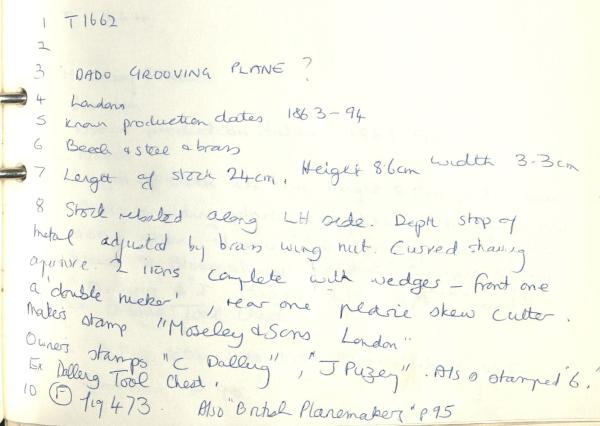 1 T1662
2
3 DADO GROOVING PLANE ?
4 London
5 Known production dates 1863-94
6 Beech & steel & brass
7 Length of stock 24cm. Height 8.6cm width 3.3cm
8 Stock rebated along LH side. Depth stop of
metal adjusted by brass wing nut. Curved shaving
aperture. 2 irons complete with wedges - front one
a 'double nicker', rear one skew cutter.
Makers stamp "Moseley & Sons London"
Owners stamps "C Dallery", "J Puzey". Also stamped '6.'
Ex Dallery Tool Chest.
10 (F) fig 473. Also "British Planemakers" p95